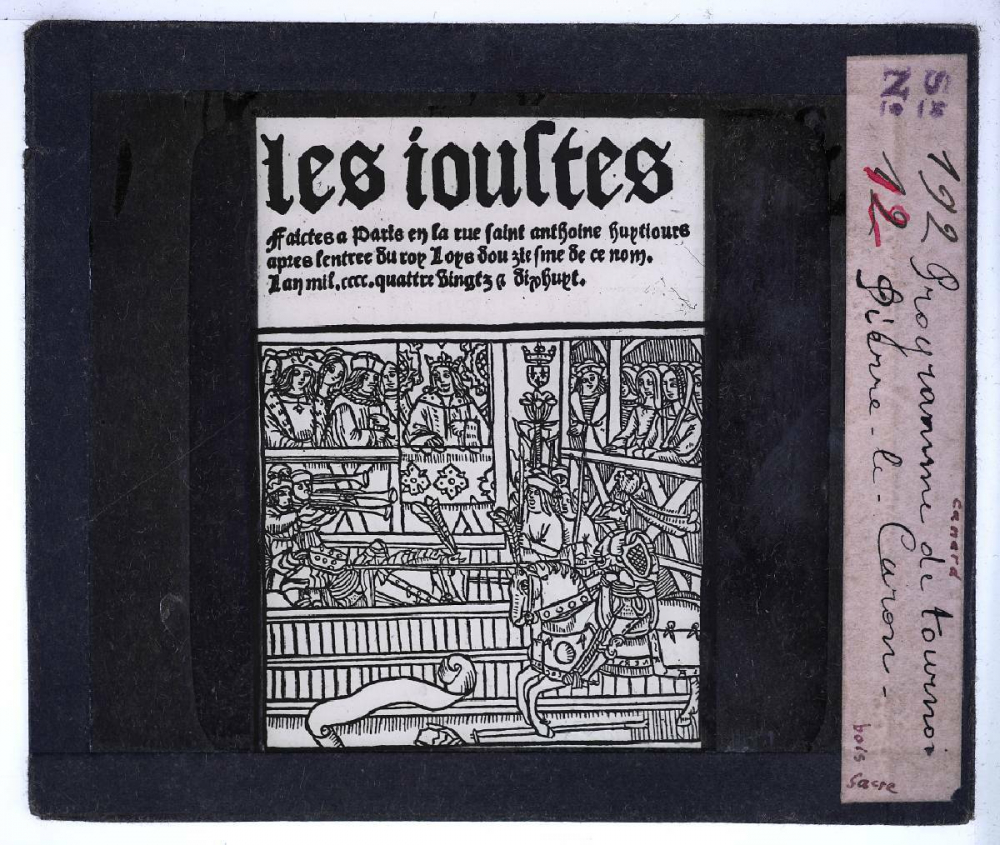 les iouſtes
Faictes a Paris en la rue ſaint anthoine huytiours
apres lentree du roy Loys douzieſme de ce nom.
Lan mil.cccc.quattre vingtz ⁊ dixhuyt.
Sie 192 Programme de tournoi
canard
No 12 Pierre - le - Caron -
bois
sacre